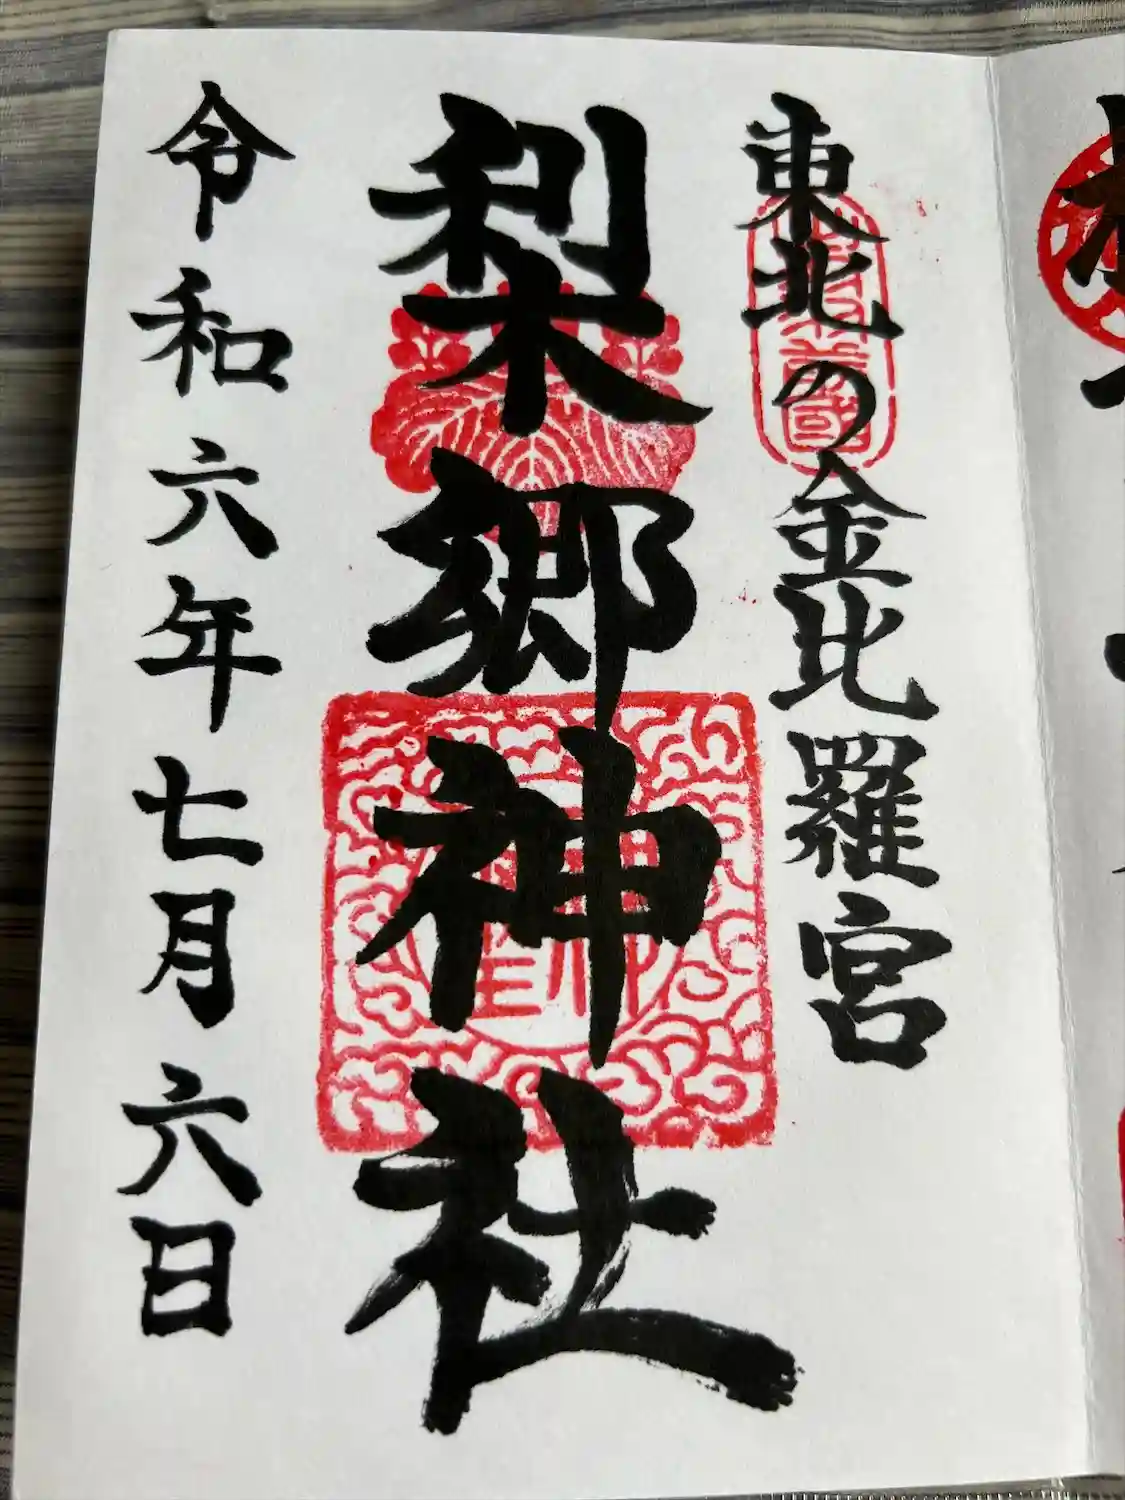 東北の金比羅宮
梨木郷神社
令和六年七月六日